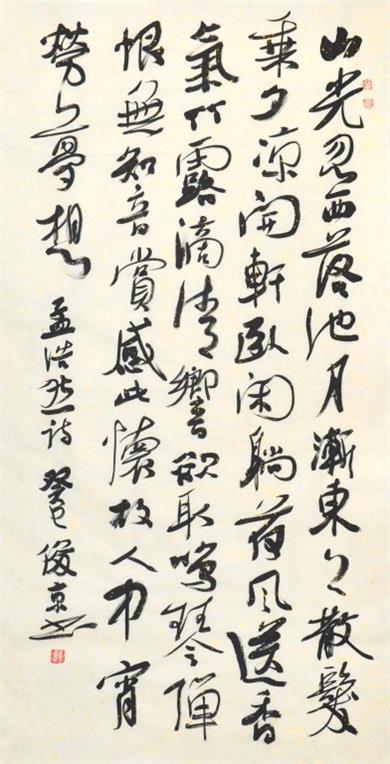 山光忽西落池月漸東上散髮
乘夕凉開軒卧闲躺荷风送香
氣竹露滴清響欲取鳴琴彈
恨無知音賞感此懷故人中宵
勞夢想 孟浩然詩 癸巳俊京书